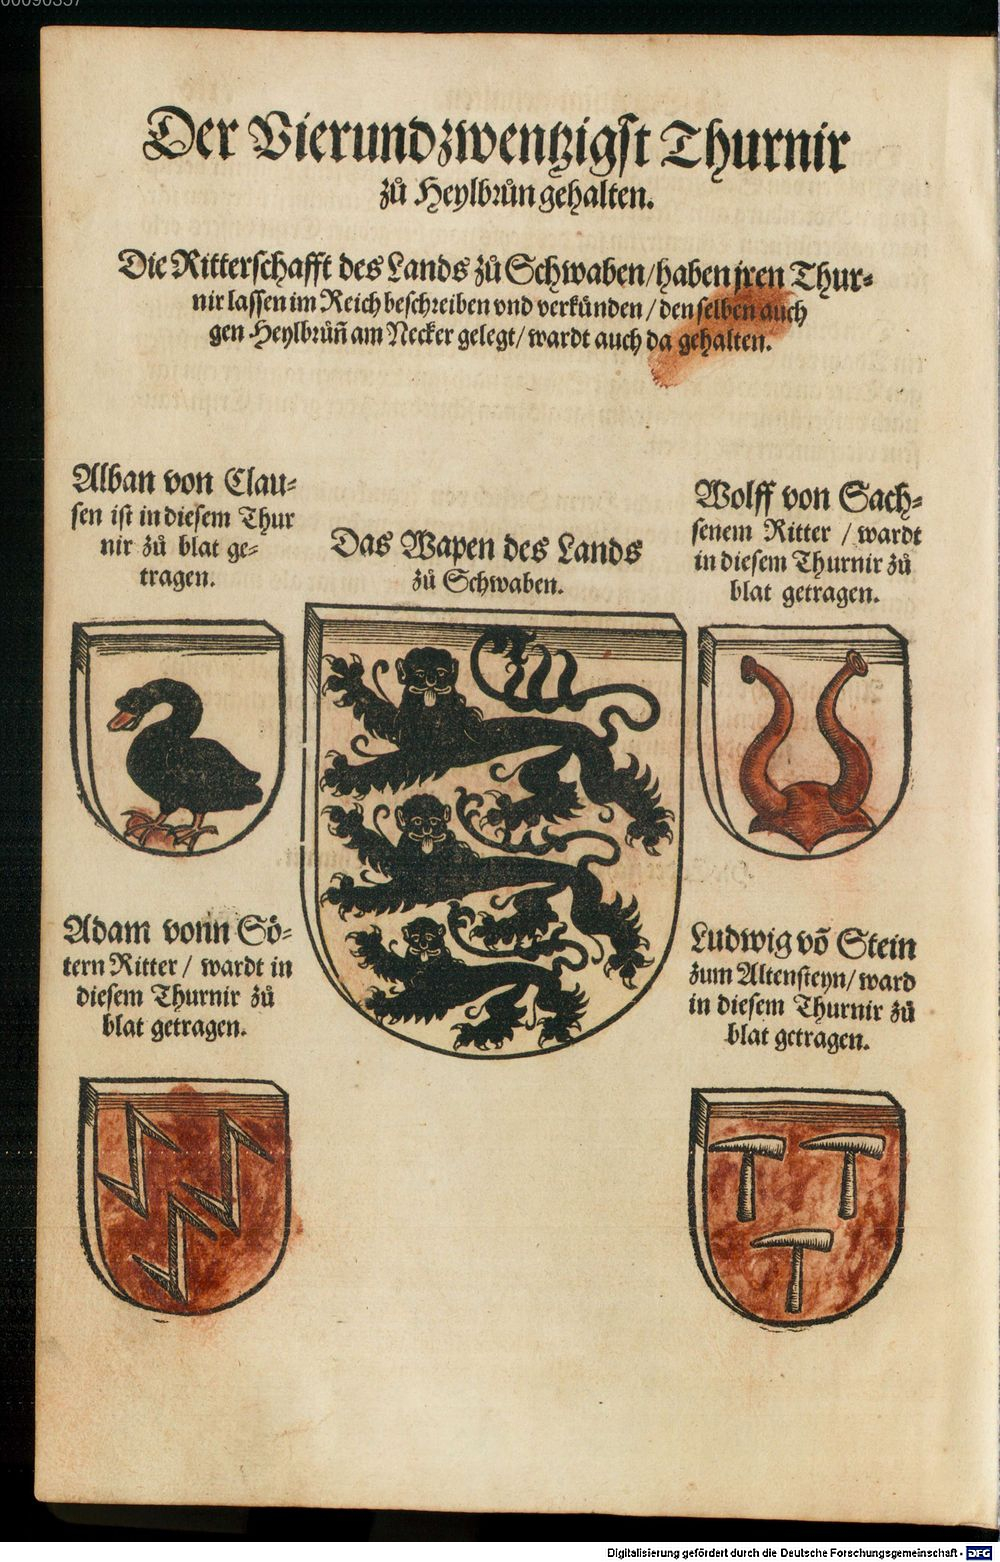 00090357
Der Vierundzwentzigst Thurnir
zů Heylbrůn gehalten.
Die Ritterschafft des Lands zů Schwaben / haben jren Thur⸗
nir lassen im Reich beschreiben vnd verkünden / den selben auch
gen Heylbrůñ am Necker gelegt / wardt auch da gehalten.
Alban von Clau⸗
sen ist in diesem Thur
nir zů blat ge⸗
tragen.
Das Wapen des Lands
zů Schwaben.
Wolff von Sach⸗
senem Ritter / wardt
in diesem Thurnir zů
blat getragen.
Adam vonn Sö⸗
tern Ritter / wardt in
diesem Thurnir zů
blat getragen.
Ludwig võ Stein
zum Altensteyn / ward
in diesem Thurnir zů
blat getragen.
Digitalisierung gefördert durch die Deutsche Forschungsgemeinschaft - DFG